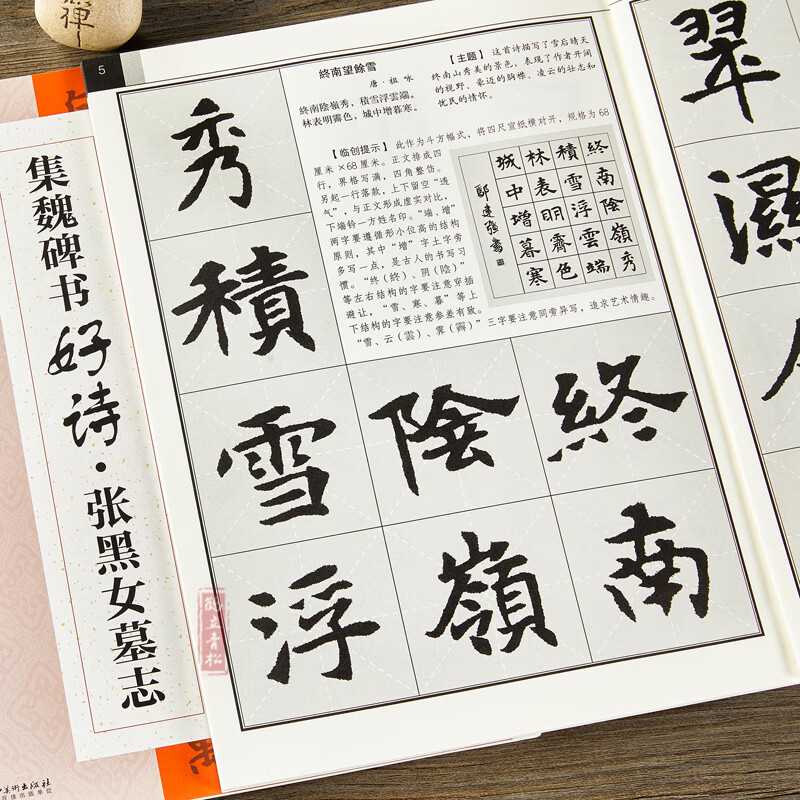 禅
5
終南望餘雪
唐·祖咏
終南陰嶺秀，積雪浮雲端。
林表明霽色，城中增暮寒。
【主题】 这首诗描写了雪后晴天
终南山秀美的景色，表现了作者开阔
的视野、豪迈的胸襟、凌云的壮志和
忧民的情怀。
【临创提示】 此作为斗方幅式，将四尺宣纸横对开，规格为68
厘米×68厘米。正文排成四
行，界格写满，四角整饬。
另起一行落款，上下留空“透
气”，与正文形成虚实对比，
下端钤一方姓名印。“端、增”
两字要遵循形小位高的结构
原则，其中“增”字土字旁
多写一点，是古人的书写习
惯。“终（終）、阴（陰）”
等左右结构的字要注意穿插
避让，“雪、寒、暮”等上
下结构的字要注意参差有致。
“雪、云（雲）、霁（霽）”三字要注意同旁异写，追求艺术情趣。
終南陰嶺秀
積雪浮雲端
林表明霽色
城中增暮寒
鄒建強書
終南
陰嶺
秀積雪浮
翠
濕
集魏碑书
好诗·张黑女墓志
鹤立青松
美術出版社
百佳出版单位